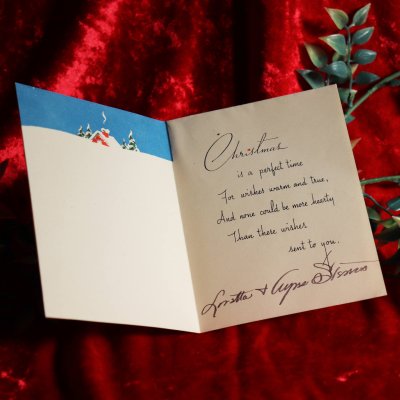 Christmas
is a perfect time
For wishes warm and true,
And none could be more hearty
Than these wishes
sent to you.
Loretta +